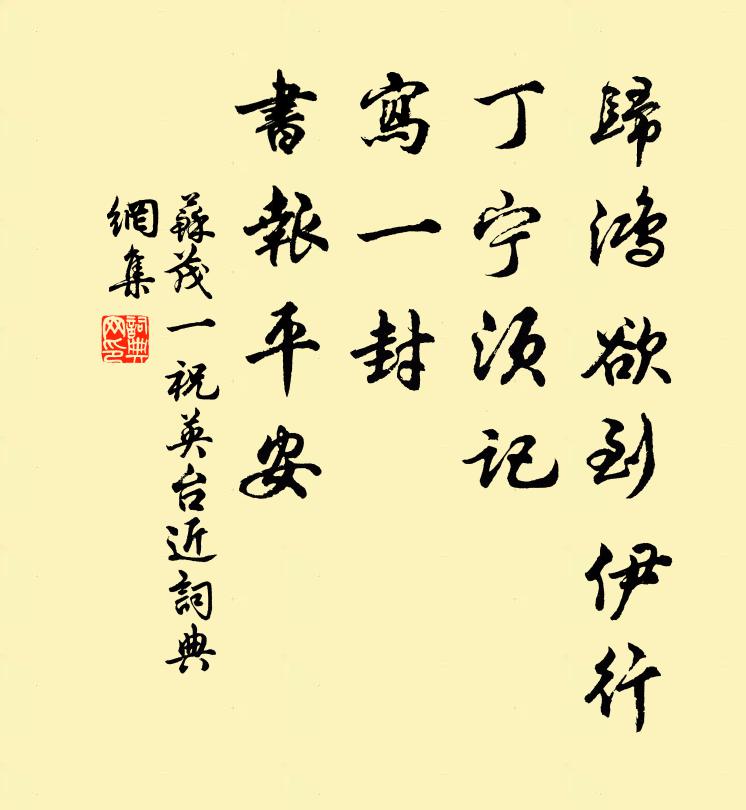 歸鴻欲到伊行
丁宁須记
寫一封
書報平安
蘇茂一祝英台近詞典
網集
詞典
网印